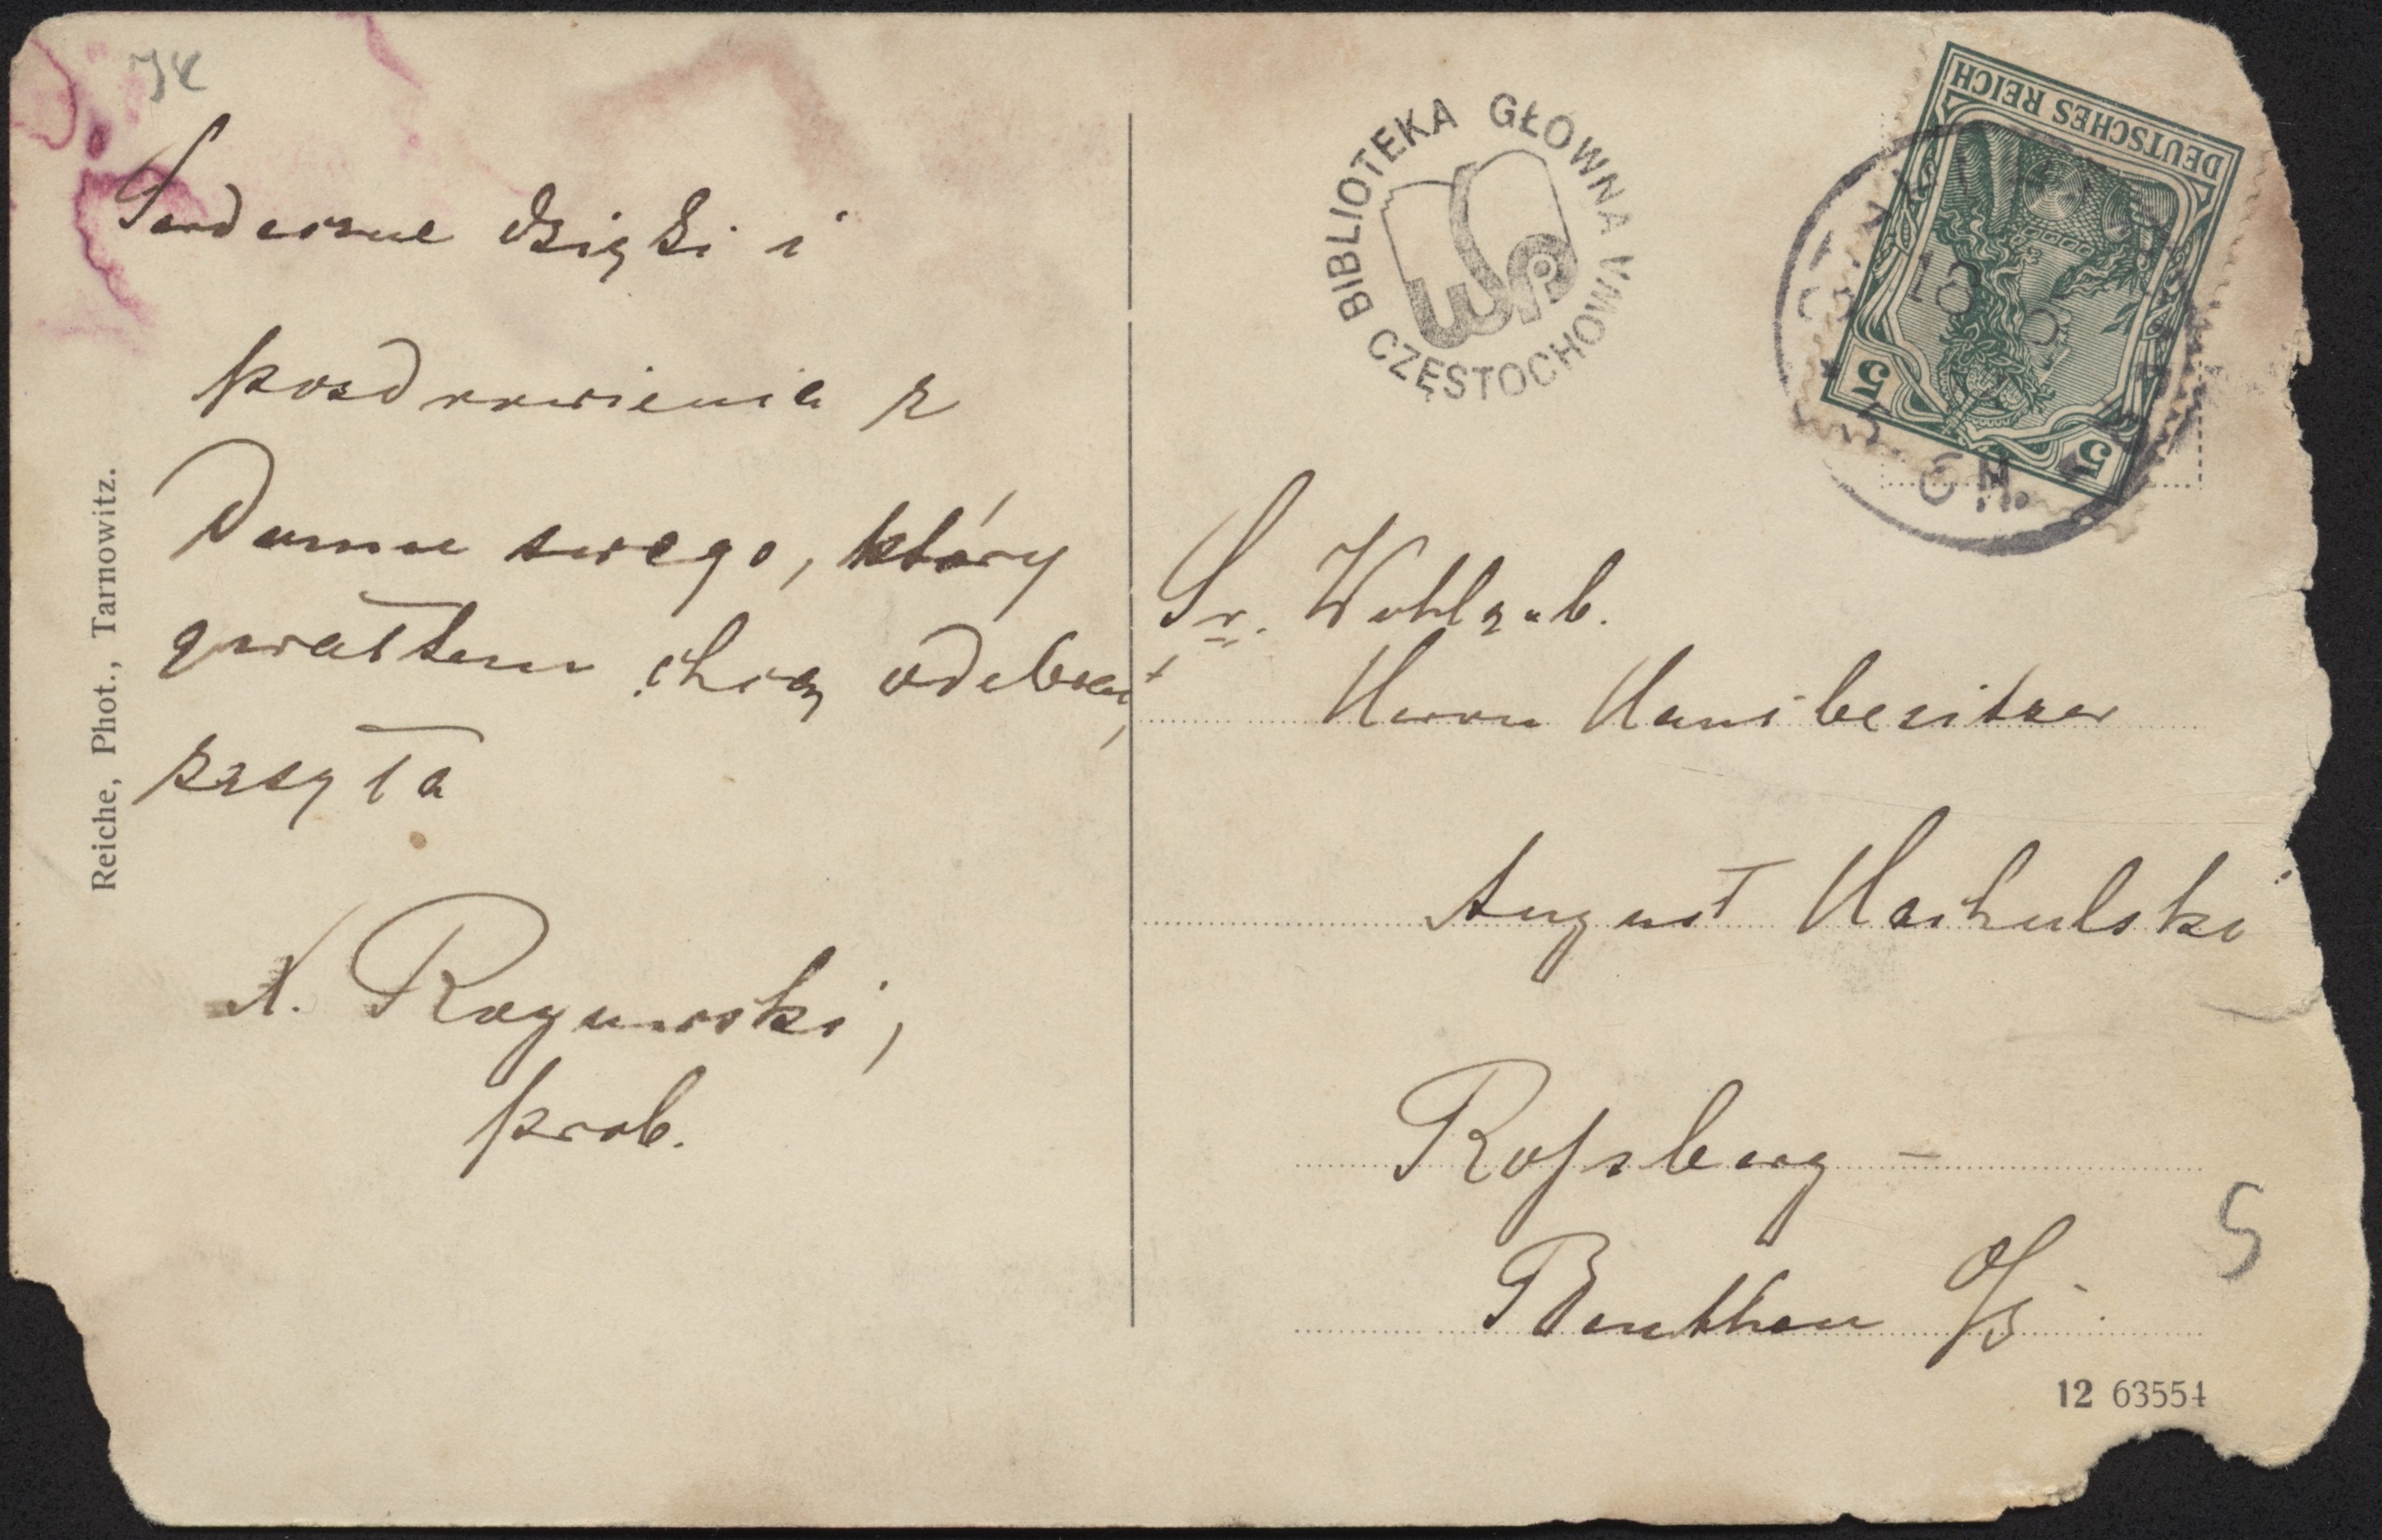 Serdeczne dzięki i
pozdrowienia z
Domu swego, który
gwałtem chcą odebrać,
zsyła
X. Rogowski,
prob.
Reiche, Phot., Tarnowitz.
BIBLIOTEKA GŁÓWNA
WSP
CZĘSTOCHOWA
DEUTSCHES REICH
5 5
Sr. Wohlgeb.
Herrn Hausbesitzer
August Machulski
Rossberg -
Beuthen O/S.
5
12 63554